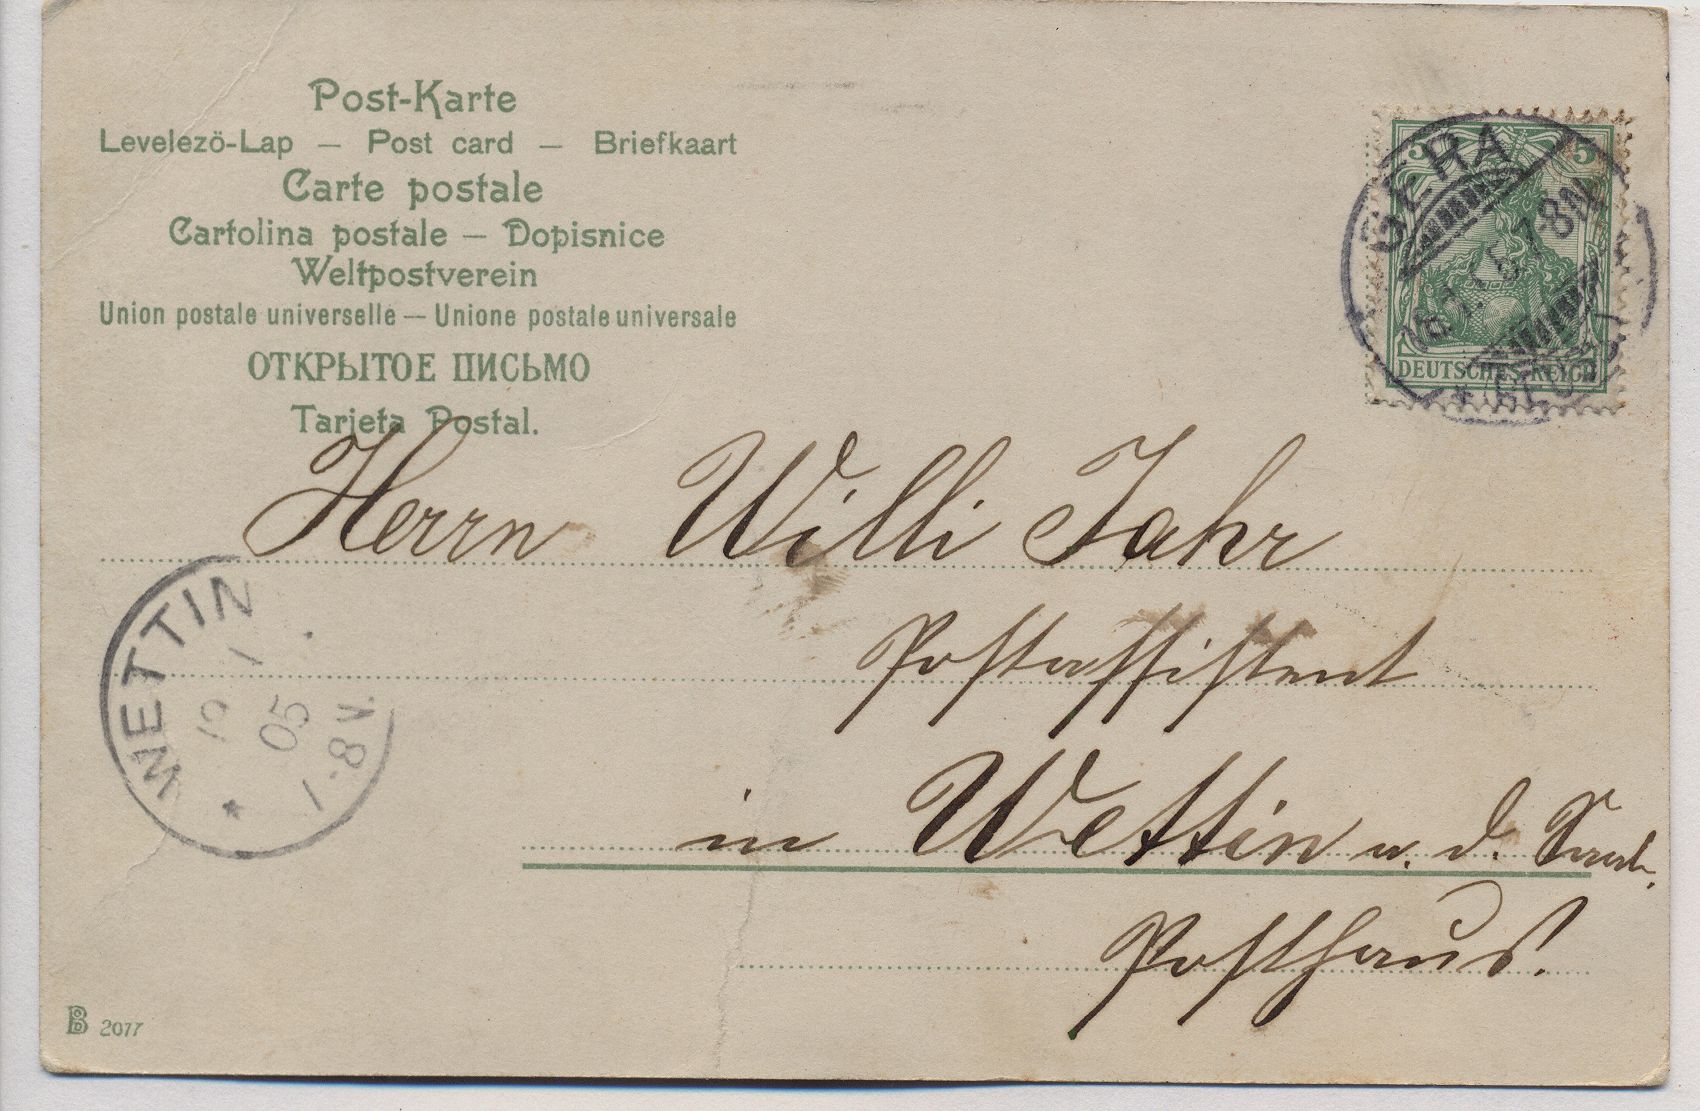 Post-Karte
Levelezö-Lap — Post card — Briefkaart
Carte postale
Cartolina postale — Dopisnice
Weltpostverein
Union postale universelle — Unione postale universale
ОТКРЫТОЕ ПИСЬМО
Tarjeta Postal.
5 5
DEUTSCHES REICH
GERA
7-8N
Herrn Willi Jahr
Postassistent
in Wettin a. d. Saale.
Posthaus!
WETTIN
1
05
7-8V.
*
B 2077